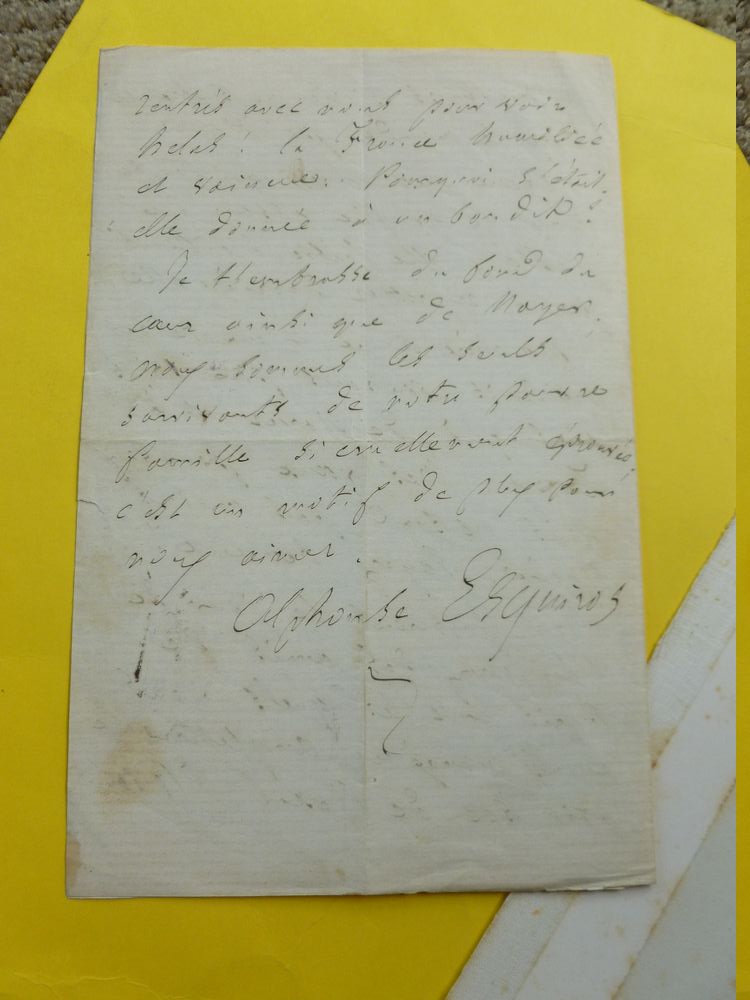 rentrés avec nous pour voir
hélas! la France humiliée
et vaincue. Pourquoi s'était-
elle donnée à un bandit?
Je t'embrasse du fond du
cœur ainsi que de
nous sommes les seuls
survivants de notre pauvre
famille si cruellement éprouvée;
c'est un motif de plus pour
nous aimer.
Alphonse Esquiros